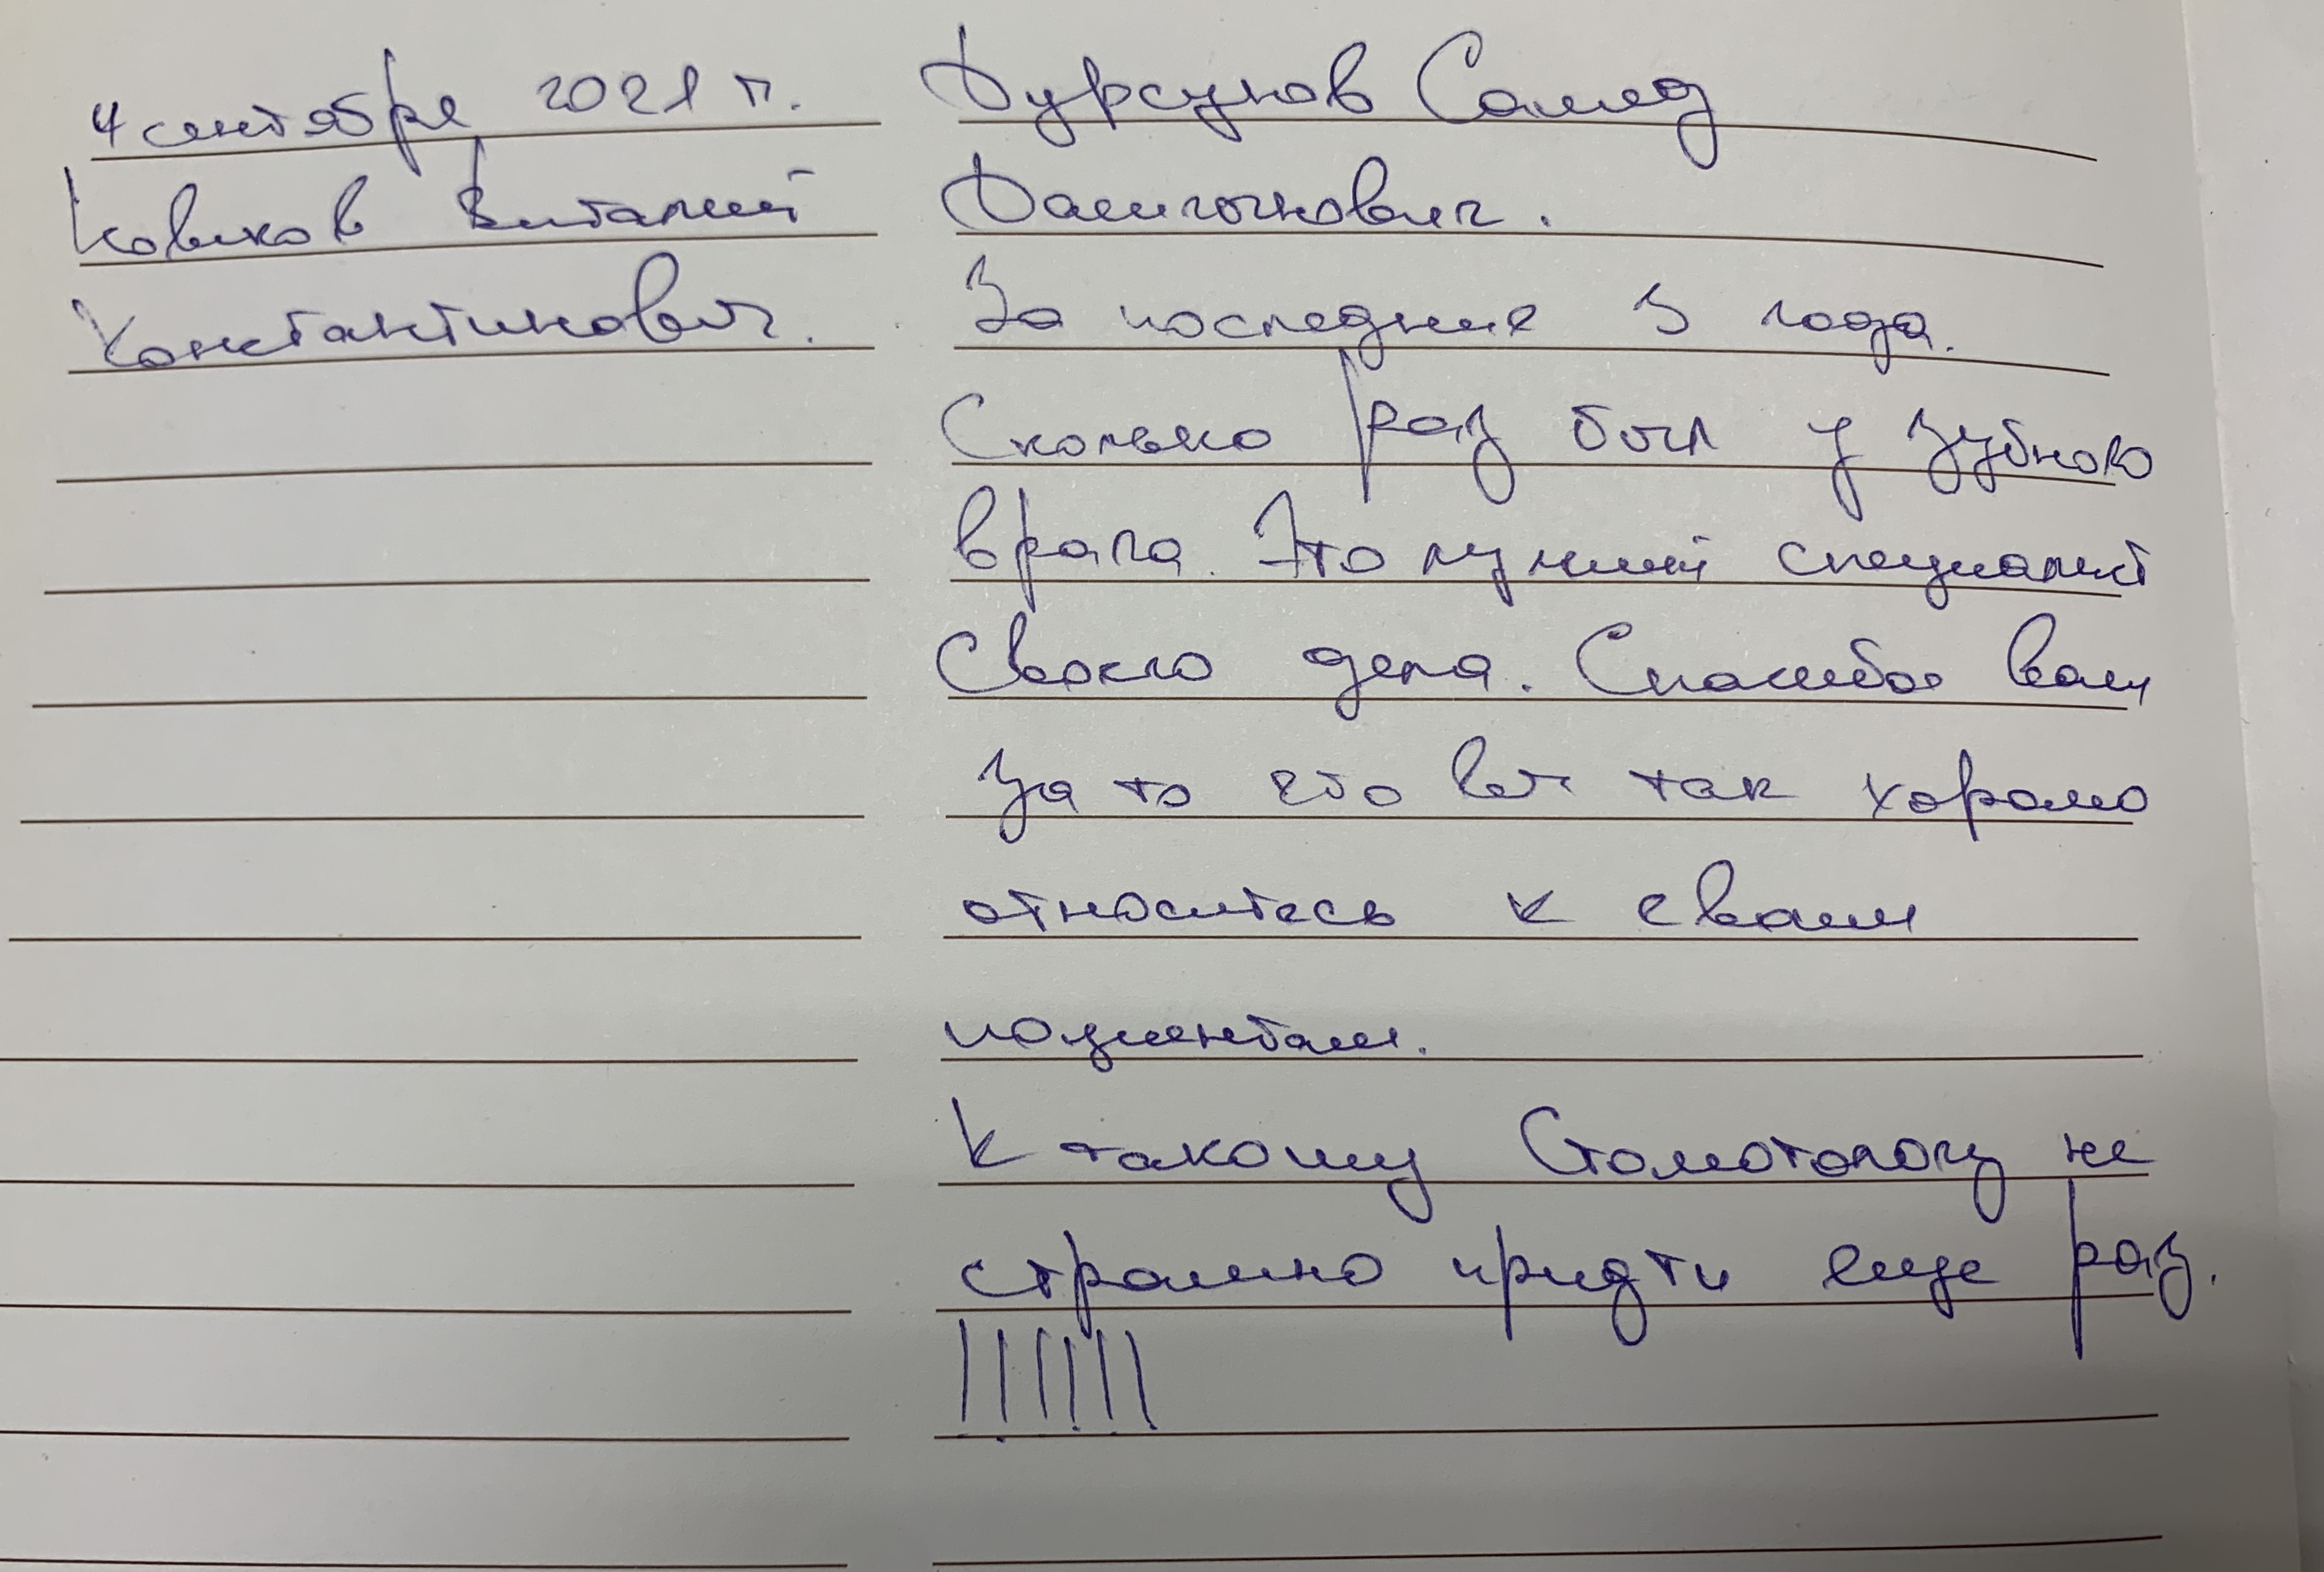 4 сентябре 2021 г.
Новиков Виталий
Константинович.
Дурсунов Самед
За последние 3 года.
Сколько раз был у зубного
врача. Это лучший специалист
своего дела. Спасибо вам
за то что вы так хорошо
относитесь к сваим
пациентам.
К такому Стомотологу не
страшно придти еще раз.
!!!!!!